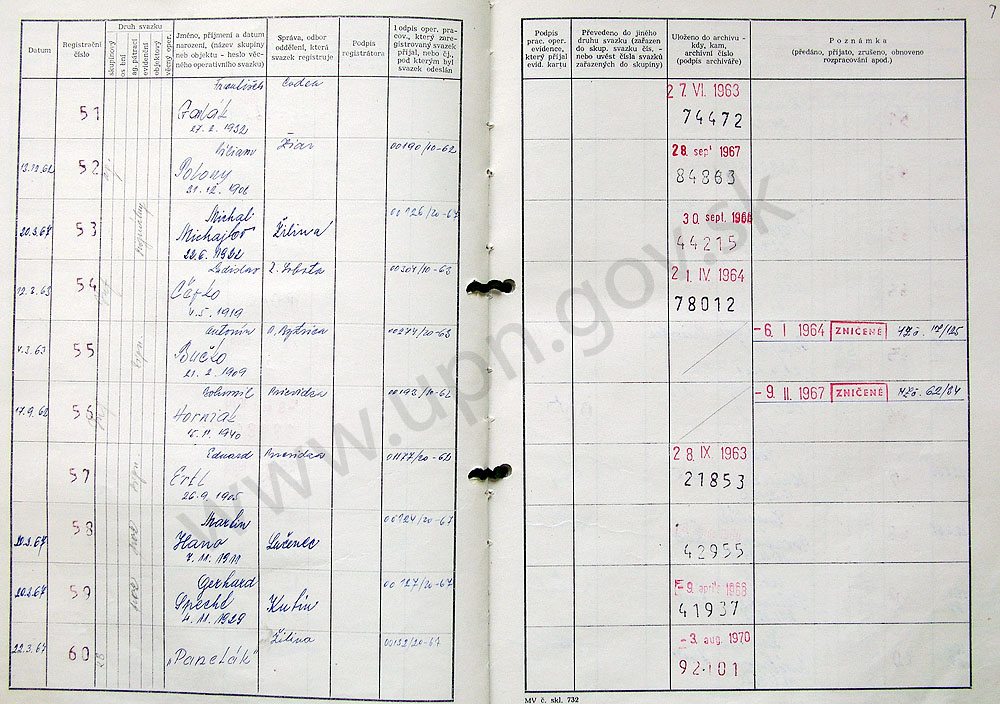 7
Datum
Registrační číslo
Druh svazku
skupinový
osobní
ag. pátrací
evidenční
objektový
věcný oper.
Jméno, příjmení a datum
narození, (název skupiny
neb objektu - heslo věc-
ného operativního svazku)
Správa, odbor
oddělení, která
svazek registruje
Podpis
registrátora
Podpis oper. pra-
cov., který zare-
gistrovaný svazek
přijal, nebo čj.
pod kterým byl
svazek odeslán
Podpis
prac. oper.
evidence,
který přijal
evid. kartu
Převedeno do jiného
druhu svazku (zařazen
do skup. svazku čís, -
nebo uvést čísla svazků
zařazených do skupiny)
Uloženo do archivu -
kdy, kam,
archivní číslo
(podpis archiváře)
Poznámka
(předáno, přijato, zrušeno, obnoveno
rozpracování apod.)
František
27. VI. 1963
51 Goňák 74472
27. 2. 1932
Viliam Žiar 00190/10-62 28. sept 1967
52 Polony 84863
21. 12. 1906
Michal 00126/20-67 30. sept. 1968
20.3.67 53 Michajlov Žilina 44215
20.6. 1932
Ladislav 00304/10-63 21. IV. 1964
54 Čéfko 78012
4.5. 1919
Antonín B. Bystrica 00274/20-63 -6. I 1964 ZNIČENÉ
4.3.63 55 Bučko
21. 2. 1909
Bohumil Prievidza 00193/10-62 -9. II. 1967 ZNIČENÉ 62/84
17.9.62 56 Horniak
15. 11. 1940
Eduard Prievidza 01177/20-62 28. IX. 1963
57 Ertl 21853
26.9. 1905
Martin 00124/20-67
20.3.67 58 Hano Lučenec 42955
7. 11. 1911
Gerhard 00127/20-67 -9. apríla 1968
20.3.67 59 Specht Kubín 41937
4. 11. 1929
Žilina 00132/20-67 -3. aug. 1970
22.3.67 60 „Panelák" 92101
MV č. skl. 732
www.upn.gov.sk